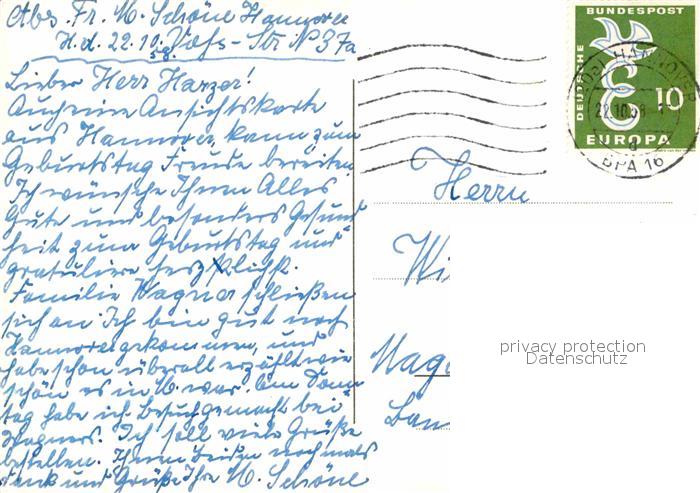 Abs. Fr. M. Schöne Hannover
H. d. 22.10.58. Voßs-Str N 37a
Lieber Herr Harzer!
Auch eine Ansichtskarte
aus Hannover, kann zum
Geburtstag Freude bereiten
Ich wünsche Ihnen Alles
Gute und besonders Gesund
heit zum Geburtstag und
gratuliere herzlichst.
Familie Wagner schließen
sich an Ich bin gut nach
Hannover gekommen, und
habe schon überall erzählt wie
schön es in M. war. Am Sonn
tag habe ich Besuch gemacht bei
Wagners. Ich soll viele Grüße
bestellen. Ihnen Beiden nochmals
dank und Grüße Ihre M. Schöne
DEUTSCHE BUNDESPOST
10
EUROPA
HANNOVER
22.10.58
BPA 16
Herrn
Wi
Mag
privacy protection
Datenschutz